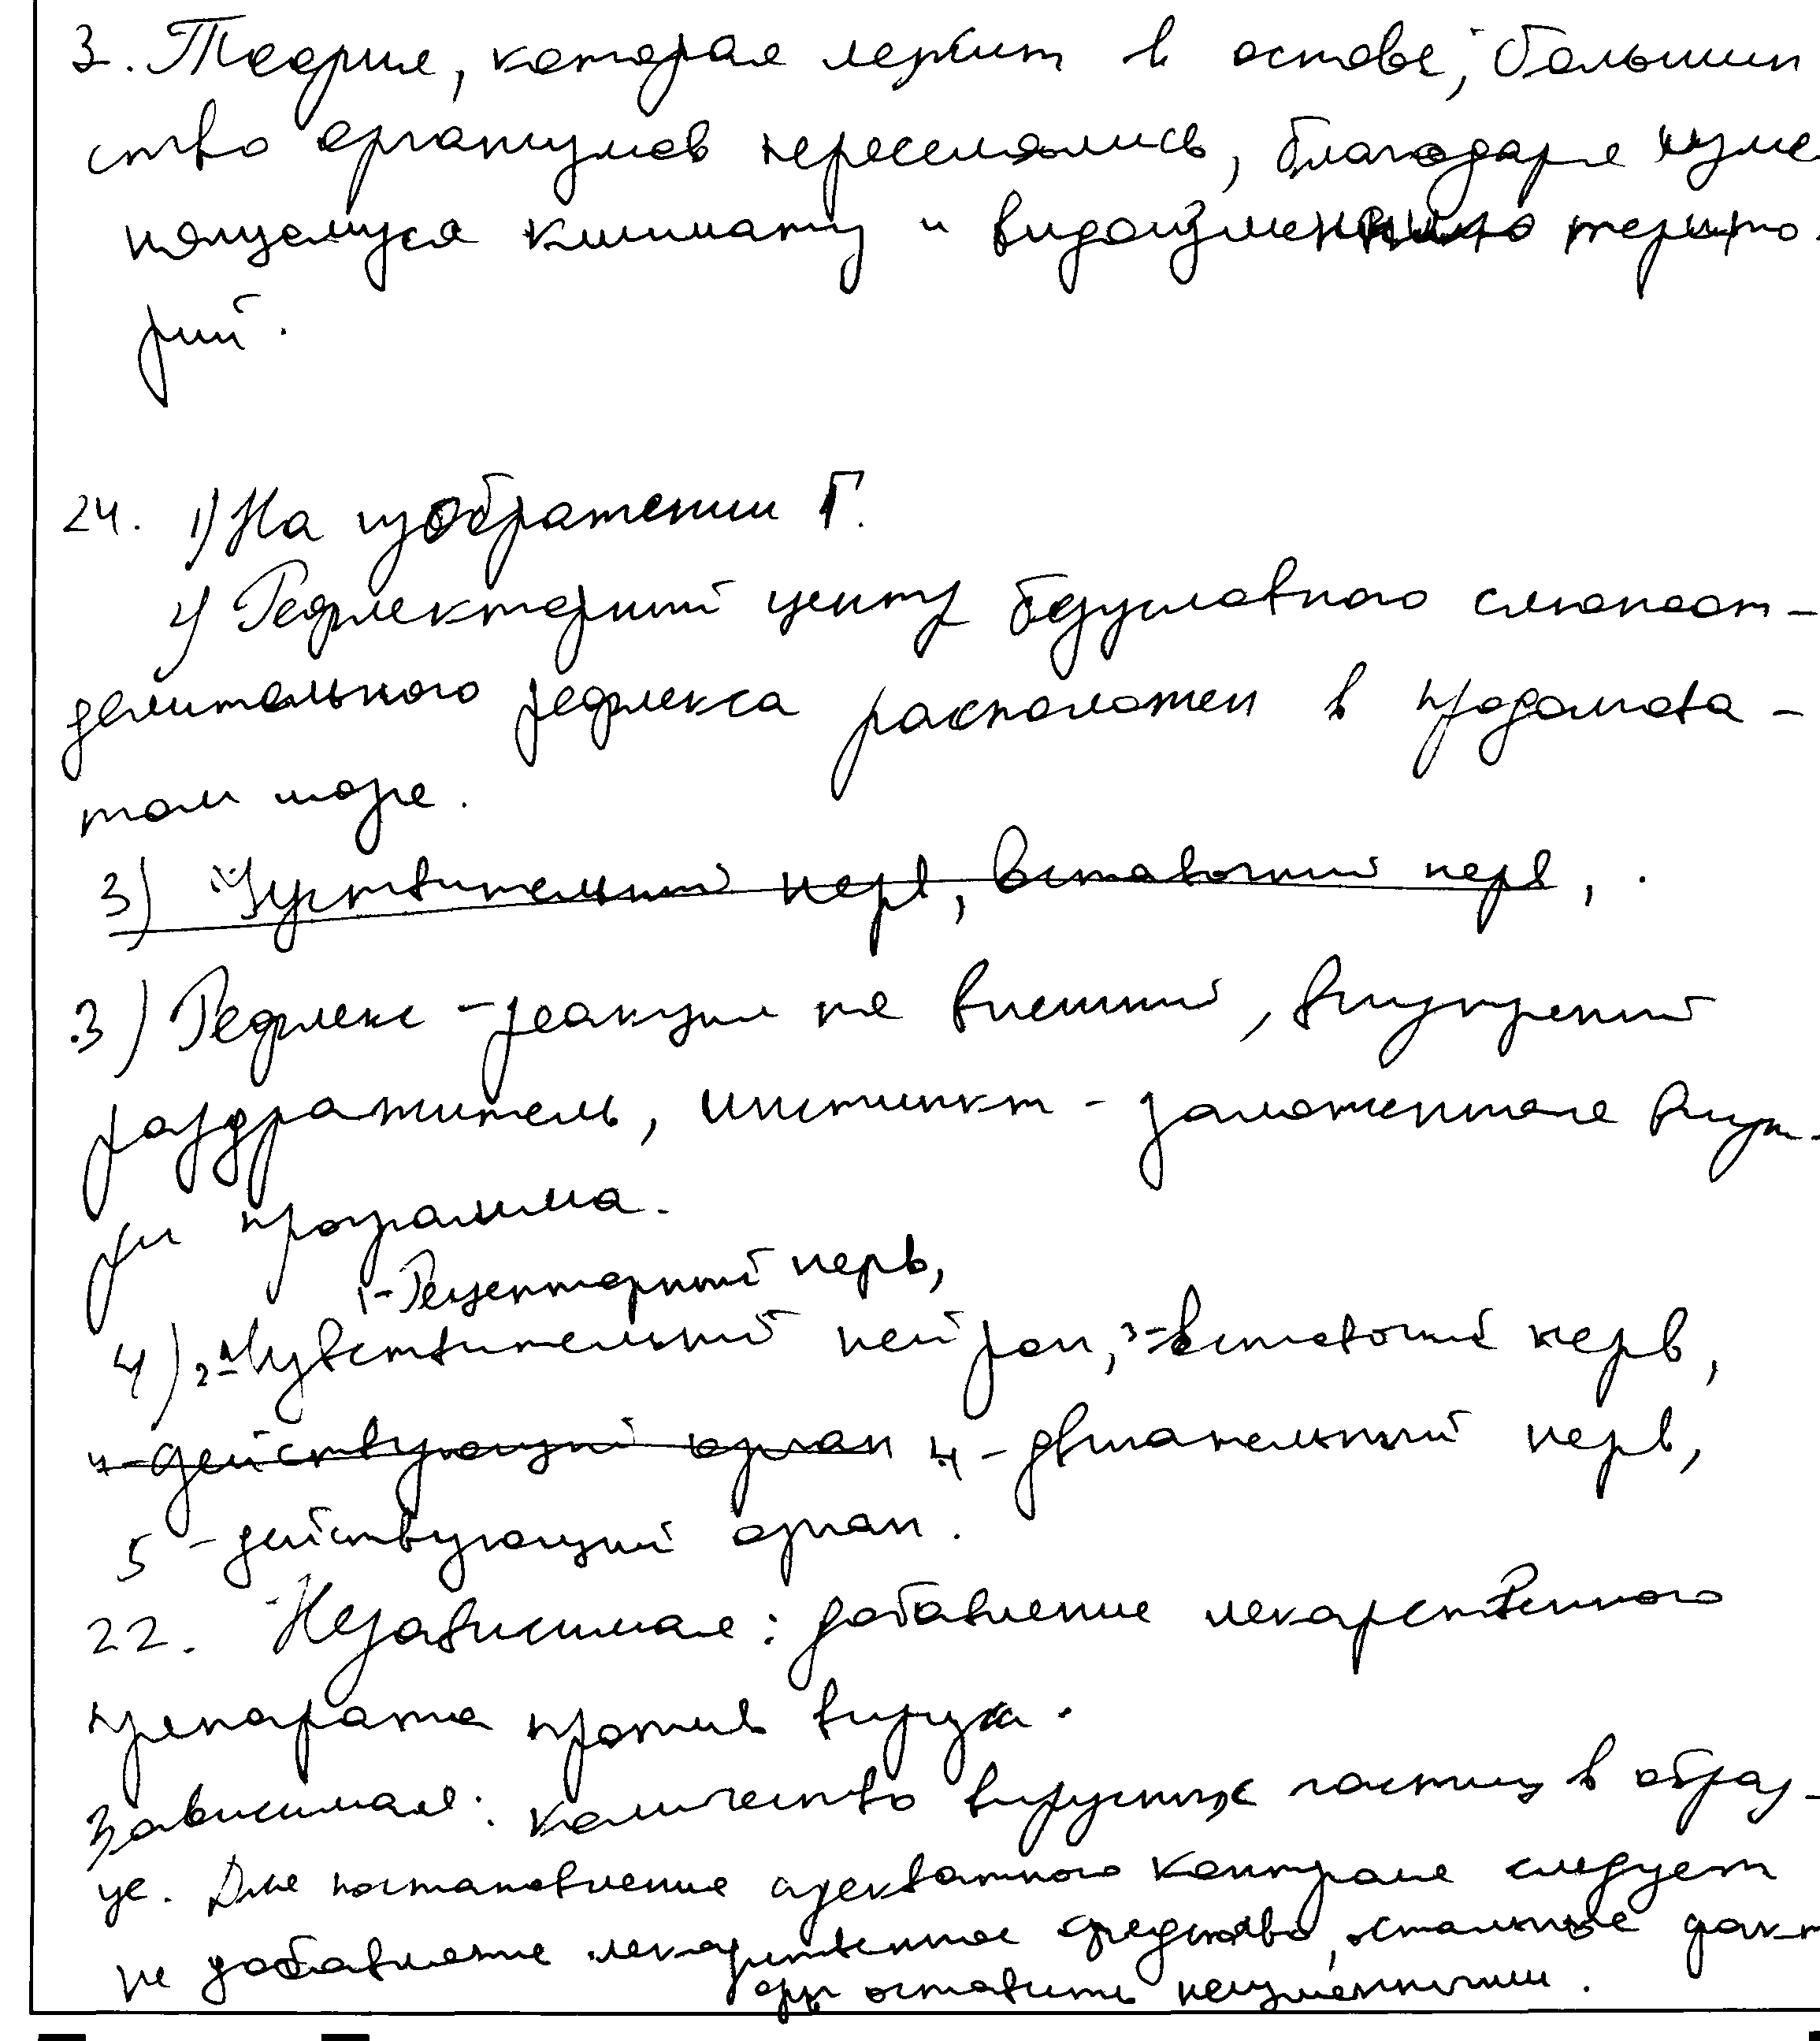 3. Теория, которая лежит в остове, большин
ство организмов переселялись, благодаря изме
няющемуся климату и видоизменению терито-
рий.
24. 1) На изображении Г.
2) Рефлекторный центр безусловного слюноот-
делительного рефлекса расположен в продолгова-
том мозге.
3) Чуствительный нерв, вставочный нерв,
3) Рефлекс - реакция на внешний, внутрений
раздражитель, инстинкт - заложенная внут-
ри программа.
1-Рецепторный нерв,
4) 2-Чувствительный нейрон, 3-вставочный нерв,
4-действующий орган 4-двигательный нерв,
5-действующий орган.
22. Независимая: добавление лекарственного
препарата против вируса.
Зависимая: количество вирусных частиц в образ-
це. Для постановления адекватного контроля следует
не добавлять лекарственное средство, остальные факт
оры оставить неизменными.